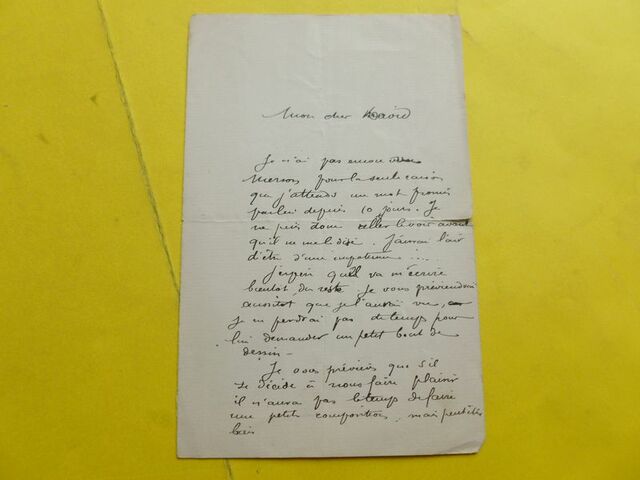 Mon cher David
Je n'ai pas encore vu
Merson pour la seule raison
que j'attends un mot promis
par lui depuis 10 jours. Je
ne puis donc aller le voir avant
qu'il ne me le dise. J'aurai l'air
d'être d'une impatience ! ...
J'espère qu'il va m'écrire
bientôt du reste je vous préviendrai
aussitôt que je l'aurai vu,
je ne perdrai pas de temps pour
lui demander un petit bout de
dessin –
Je vous préviens que s'il
se décide à nous faire plaisir
il n'aura pas le temps de faire
une petite composition, mais peut être
bien